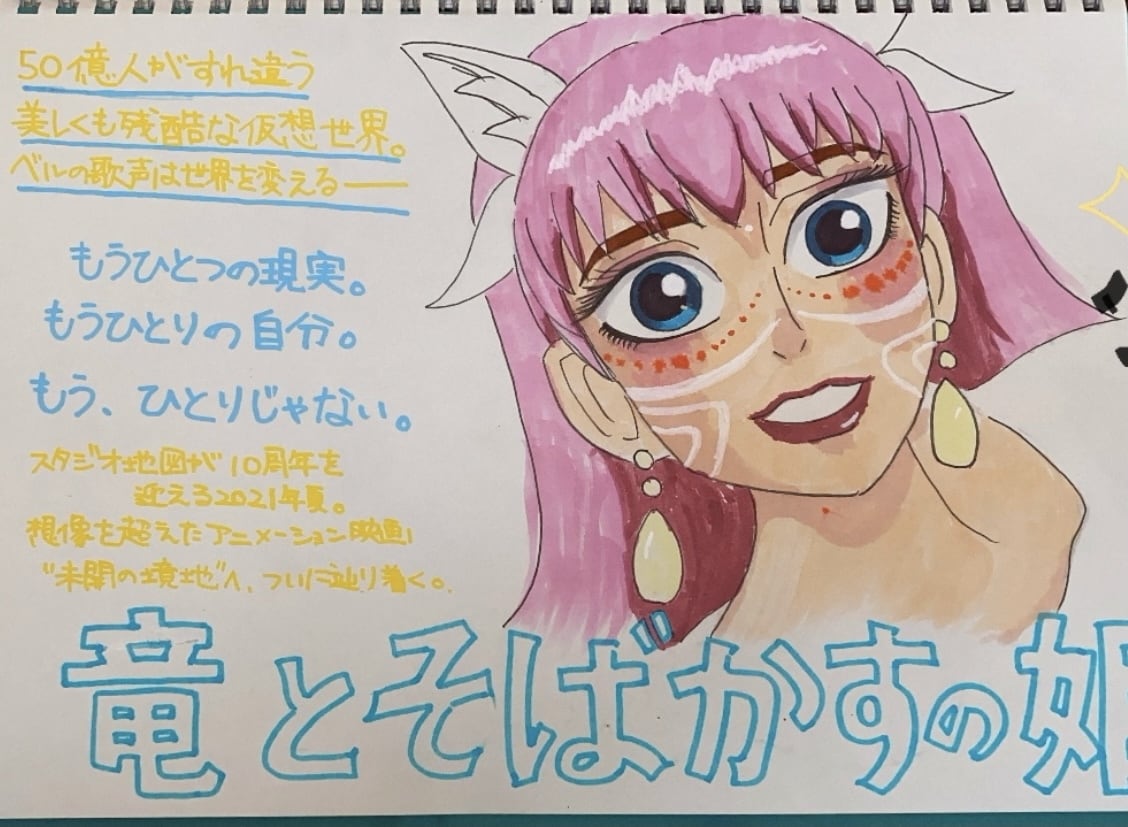 50億人がすれ違う
美しくも残酷な仮想世界。
ベルの歌声は世界を変える──
もうひとつの現実。
もうひとりの自分。
もう、ひとりじゃない。
スタジオ地図が10周年を
迎える2021年夏。
想像を超えたアニメーション映画
"未開の境地"へ、ついに辿り着く。
竜とそばかすの姫